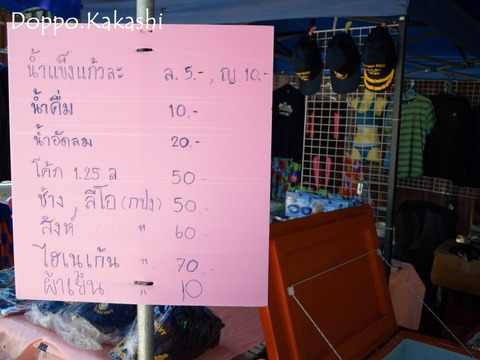 Doppo.Kakashi
น้ำแข็งแก้วละ ล. 5.- , ญ 10.-
น้ำดื่ม 10.-
น้ำอัดลม 20.-
โค้ก 1.25 ล 50.-
ช้าง, ลีโอ (กป๋) 50.-
สิงห์ " 60.-
ไฮเนเก้น " 70.-
ผ้าเย็น " 10